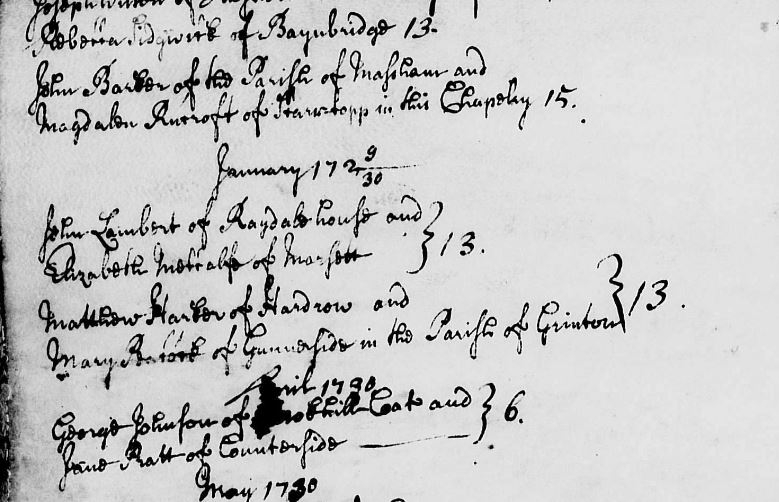 Rebecca Sidgwick of Baynbridge 13.
John Barker of the Parish of Massham and
Magdalen Rucroft of in this Chapelry 15.
January 172 9/30
John Lambert of Raydale house and
Elizabeth Metcalfe of Marsett } 13.
Matthew Harker of Hardrow and
Mary of Gunnerside in the Parish of Grinton } 13.
April 1730
George Johnson of Cote and } 6.
Jane Pratt of Counterside
May 1730